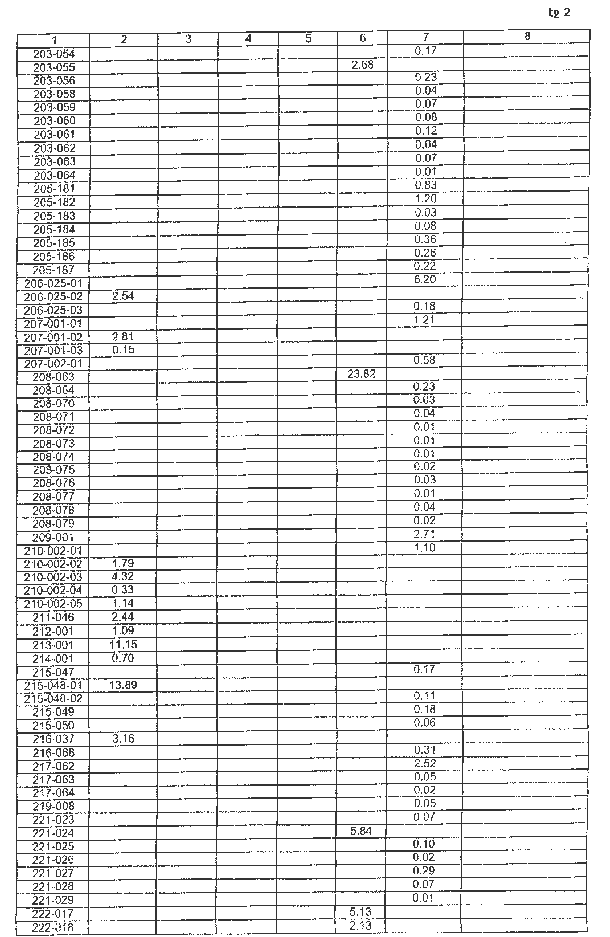 to 2
1 2 3 4 5 6 7 8
203-054 0.17
203-055 2.68
203-056 0.23
203-058 0.04
203-059 0.07
203-060 0.08
203-061 0.12
203-062 0.04
203-063 0.07
203-064 0.01
205-181 0.83
205-182 1.20
205-183 0.03
205-184 0.08
205-185 0.36
205-186 0.26
205-187 0.22
206-025-01 6.20
206-025-02 2.54
206-025-03 0.18
207-001-01 1.21
207-001-02 2.81
207-001-03 0.15
207-002-01 0.58
208-063 23.82
208-064 0.23
208-070 0.03
208-071 0.04
208-072 0.01
208-073 0.01
208-074 0.01
208-075 0.02
208-076 0.03
208-077 0.01
208-078 0.04
208-079 0.02
209-001 2.71
210-002-01 1.10
210-002-02 1.79
210-002-03 4.32
210-002-04 0.33
210-002-05 1.14
211-046 2.44
212-001 1.09
213-001 11.15
214-001 0.70
215-047 0.17
215-048-01 13.89
215-048-02 0.11
215-049 0.18
215-050 0.06
216-037 3.16
216-068 0.31
217-062 2.52
217-063 0.05
217-064 0.02
219-008 0.05
221-023 0.07
221-024 5.84
221-025 0.10
221-026 0.02
221-027 0.29
221-028 0.07
221-029 0.01
222-017 5.13
222-018 2.13